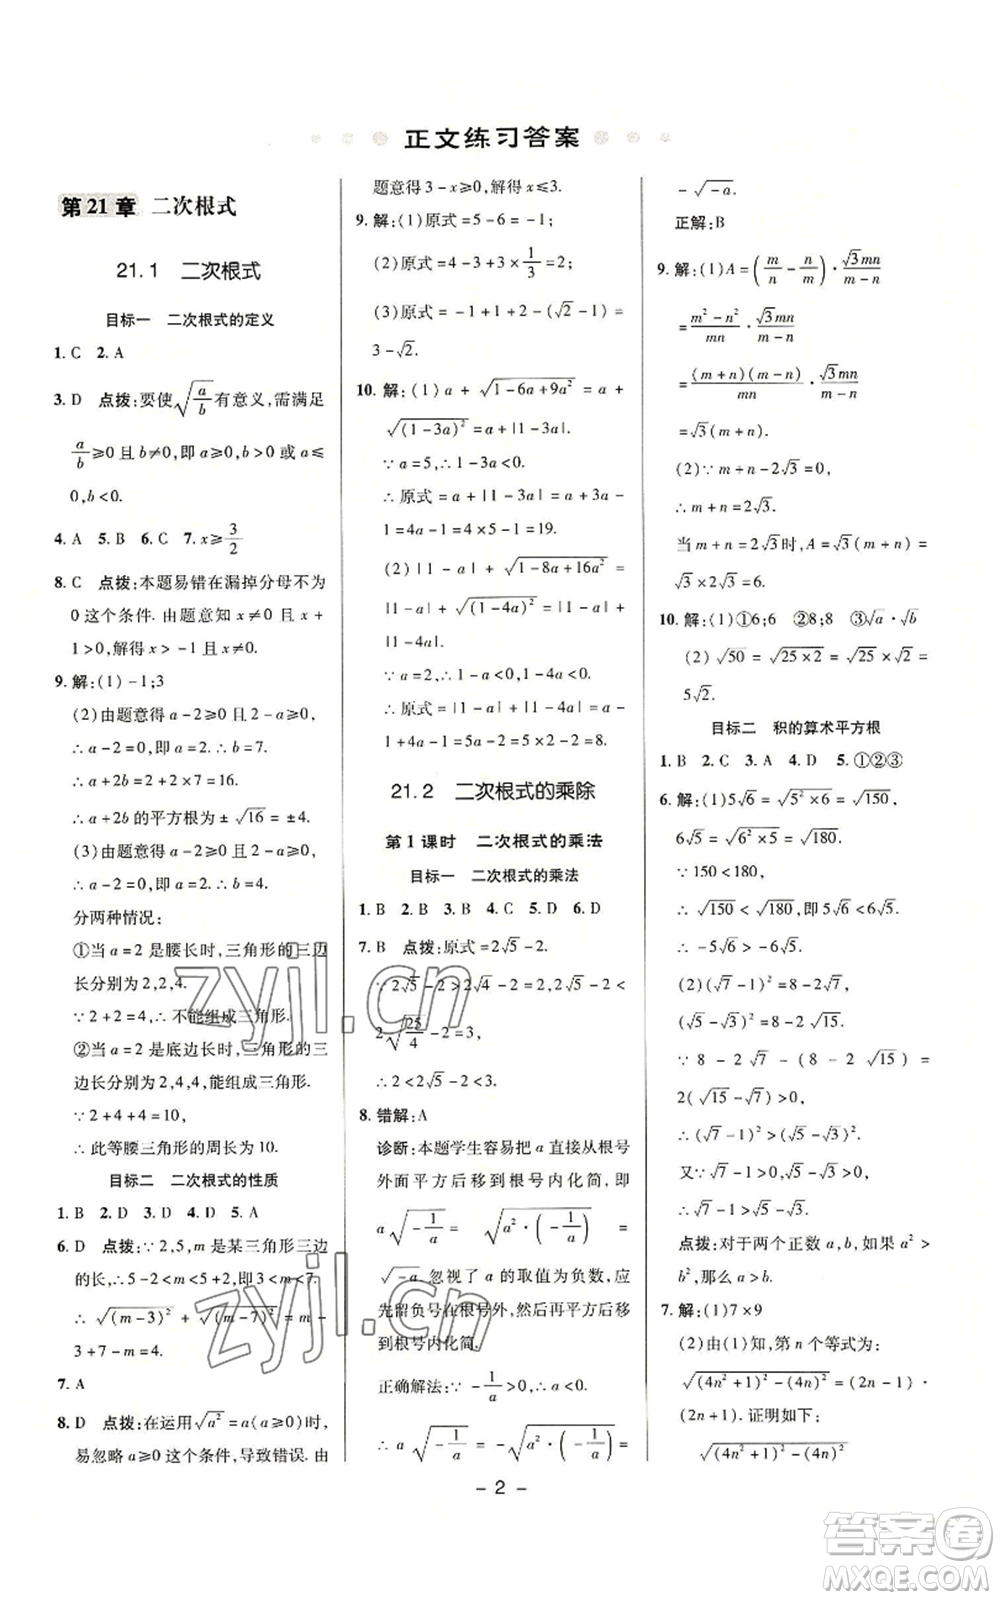 正文练习答案
第21章 二次根式
21.1 二次根式
目标一 二次根式的定义
1. C 2. A
3. D 点拨:要使√(a/b)有意义,需满足
a/b≥0且b≠0,即a≥0,b>0或a≤
0,b<0.
4. A 5. B 6. C 7. x≥3/2
8. C 点拨:本题易错在漏掉分母不为
0这个条件. 由题意知x≠0且x+
1>0,解得x>-1且x≠0.
9. 解:(1)-1;3
(2)由题意得a-2≥0且2-a≥0,
∴a-2=0,b=7.
∴a=2,b=7.
∴a+2b=2+2×7=16.
∴a+2b的平方根为±√16=±4.
(3)由题意得a-2≥0且2-a≥0,
∴a-2=0,b=4.
∴a=2,b=4.
分两种情况:
①当a=2是腰长时,三角形的三边长
分别为2,2,4.
∵2+2=4,∴不能组成三角形.
②当a=2是底边长时,三角形的三
边长分别为2,4,4,能组成三角形.
∵2+4+4=10,
∴此等腰三角形的周长为10.
目标二 二次根式的性质
1. B 2. D 3. D 4. D 5. A
6. D 点拨:∵2,5,m是某三角形三边
的长,∴5-2<m<5+2,即3<m<7.
∴√(m-3)²+√(m-7)²=m-
3+7-m=4.
7. A
8. D 点拨:在运用√a²=a(a≥0)时,
易忽略a≥0这个条件,导致错误. 由
题意得3-x≥0,解得x≤3.
9. 解:(1)原式=5-6=-1;
(2)原式=4-3+3×1/3=2;
(3)原式=-1+1+2-(√2-1)=
3-√2.
10. 解:(1)a+√(1-6a+9a²)=a+
√(1-3a)²=a+|1-3a|.
∵a=5,∴1-3a<0.
∴原式=a+|1-3a|=a+3a-
1=4a-1=4×5-1=19.
(2)|1-a|+√(1-8a+16a²)=
|1-a|+√(1-4a)²=|1-a|+
|1-4a|.
∵a=2,∴1-a<0,1-4a<0.
∴原式=|1-a|+|1-4a|=a-
1+4a-1=5a-2=5×2-2=8.
21.2 二次根式的乘除
第1课时 二次根式的乘法
目标一 二次根式的乘法
1. B 2. B 3. B 4. C 5. D 6. D
7. B 点拨:原式=2√5-2.
∵2√5-2>2√4-2=2,2√5-2<
2√(25/4)-2=3,
∴2<2√5-2<3.
8. 错解:A
诊断:本题学生容易把a直接从根号
外面平方后移到根号内化简,即
a√(-1/a)=√(a²·(-1/a))=
√-a,忽视了a的取值为负数,应
先留负号在根号外,然后平方后移
到根号内化简.
正确解法:∵-1/a>0,∴a<0.
∴a√(-1/a)=-√(a²·(-1/a))=
-√-a.
正解:B
9. 解:(1)A=(m/n-n/m)·√3mn/(m-n)
=(m²-n²)/mn·√3mn/(m-n)
=(m+n)(m-n)/mn·√3mn/(m-n)
=√3(m+n).
(2)∵m+n-2√3=0,
∴m+n=2√3.
当m+n=2√3时,A=√3(m+n)=
√3×2√3=6.
10. 解:(1)①6;6 ②8;8 ③√a·√b
(2)√50=√(25×2)=√25×√2=
5√2.
目标二 积的算术平方根
1. B 2. C 3. A 4. D 5. ①②③
6. 解:(1)5√6=√(5²×6)=√150,
6√5=√(6²×5)=√180.
∵150<180,
∴√150<√180,即5√6<6√5.
∴-5√6>-6√5.
(2)(√7-1)²=8-2√7,
(√5-√3)²=8-2√15.
∵8-2√7-(8-2√15)=
2(√15-√7)>0,
∴(√7-1)²>(√5-√3)².
又∵√7-1>0,√5-√3>0,
∴√7-1>√5-√3.
点拨:对于两个正数a,b,如果a²>
b²,那么a>b.
7. 解:(1)7×9
(2)由(1)知,第n个等式为:
√((4n²+1)²-(4n²-1)²)=(2n-1)·
(2n+1). 证明如下:
√((4n²+1)²-(4n²-1)²)
- 2 -
zyjl.cn
zyjl.cn
答案圈
MXQE.COM